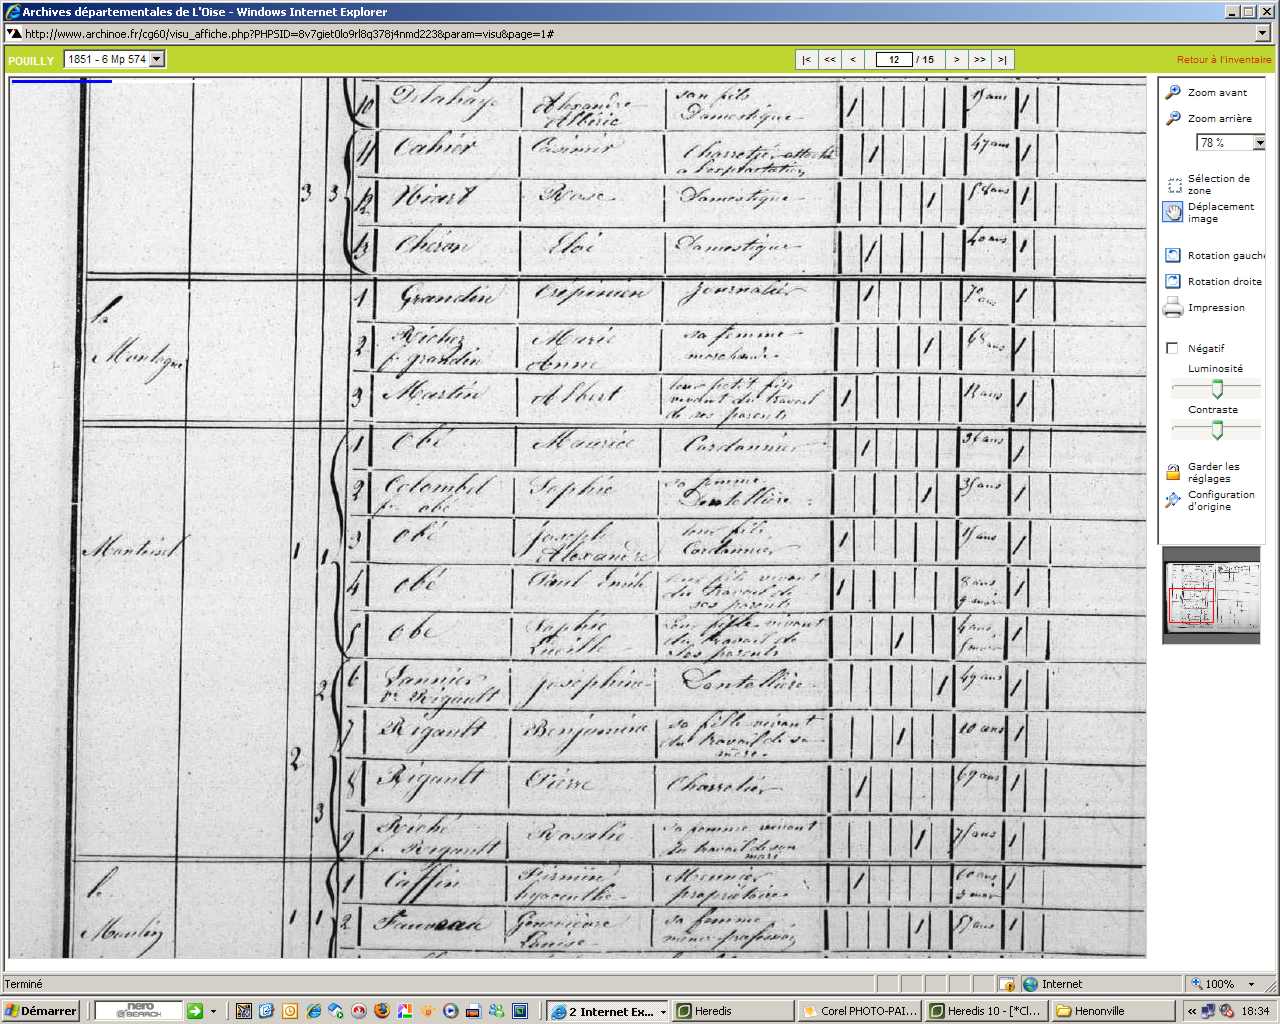 Archives départementales de L'Oise - Windows Internet Explorer
http://www.archinoe.fr/cg60/visu_affiche.php?PHPSID=8v7giet0lo9rl8q378j4nmd223&param=visu&page=1#
POUILLY 1851 - 6 Mp 574 |< << < 12 / 15 > >> >| Retour à l'inventaire
Zoom avant
Zoom arrière
78 %
Sélection de zone
Déplacement image
Rotation gauche
Rotation droite
Impression
Négatif
Luminosité
Contraste
Garder les réglages
Configuration d'origine
10 Delahaye Alexandre Albéric son fils Domestique 1
11 Cahier Casimir Charretier attaché à l'exploitation 1 47 ans 1
3 3 12 Rose Domestique 1 1
13 Chéron Eloi Domestique 1 40 ans 1
la Montagne
1 Grandin Crépinien Journalier 1 70 ans 1
2 Richer f. grandin Marie Anne sa femme marchande 1 68 ans 1
3 Martin Albert leur petit fils vivant du travail de ses parents 1 1
Montoisel
1 1 1 Obé Maurice Cordonnier 1 36 ans 1
2 Colombel f. obé Sophie sa femme Dentellière 1 1
3 obé Joseph Alexandre leur fils Cordonnier 1 1
4 obé Paul Emile leur fils vivant du travail de ses parents 1 8 ans 9 mois 1
5 obé Sophie Lucille leur fille vivant du travail de ses parents 1 1
2 6 Vannier ve Rigault Joséphine Dentellière 1 49 ans 1
7 Rigault Benjamine sa fille vivant du travail de sa mère 1 10 ans 1
2 8 Rigault Pierre Charretier 1 69 ans 1
3 9 Riché f. Rigault Rosalie sa femme vivant du travail de son mari 1 1
le Moulin
1 1 1 Caffin Firmin hyacinthe Meunier propriétaire 1 60 ans 3 mois 1
2 Fauveau Geneviève Louise sa femme même profession 1 57 ans 1
Terminé Internet 100%
Démarrer nero SEARCH 2 Internet Ex... Heredis Corel PHOTO-PAI... Heredis 10 - [*Cl... Henonville 18:34